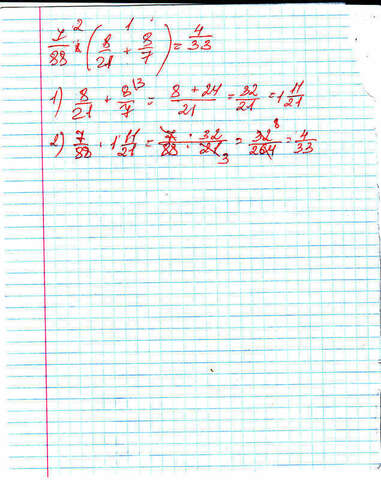 7/88 · (8/21 + 8/7) = 4/33
1) 8/21 + 8/7 = 8 + 24/21 = 32/21 = 1 11/21
2) 7/88 · 1 11/21 = 7 · 32/88 · 21 = 32/264 = 4/33